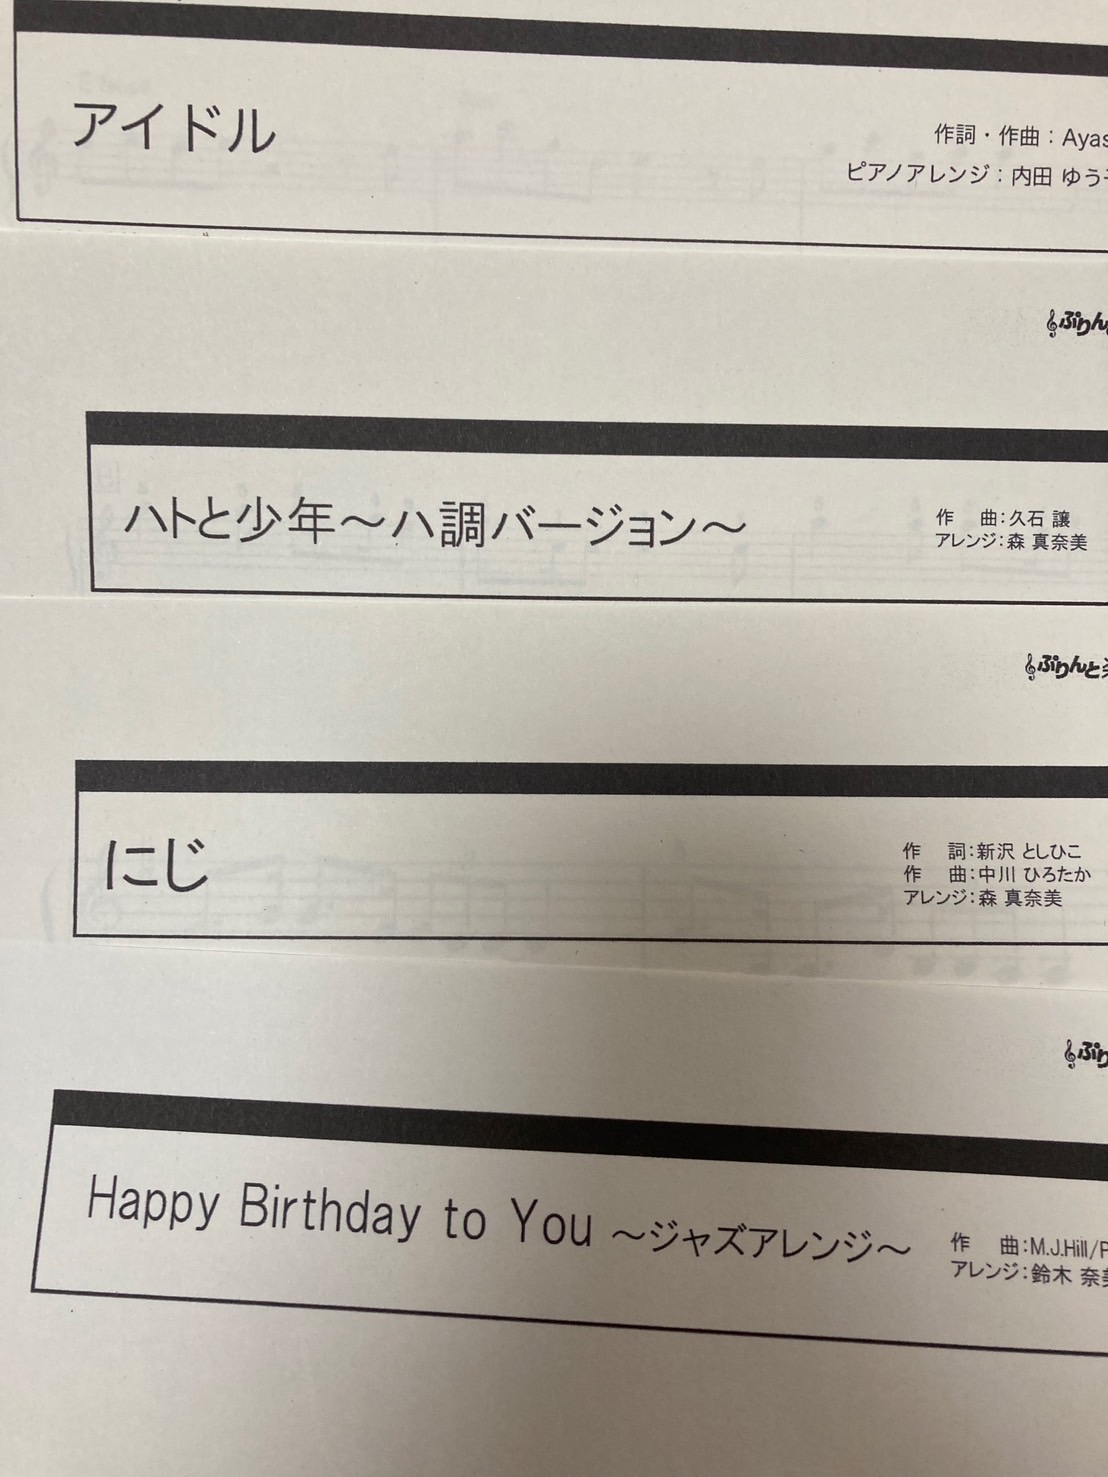 アイドル
作詞・作曲：Ayas
ピアノアレンジ：内田 ゆう
ぷりん
ハトと少年〜ハ調バージョン〜
作 曲：久石 譲
アレンジ：森 真奈美
ぷりんと
にじ
作 詞：新沢 としひこ
作 曲：中川 ひろたか
アレンジ：森 真奈美
ぷり
Happy Birthday to You 〜ジャズアレンジ〜
作 曲：M.J.Hill/P
アレンジ：鈴木 奈美